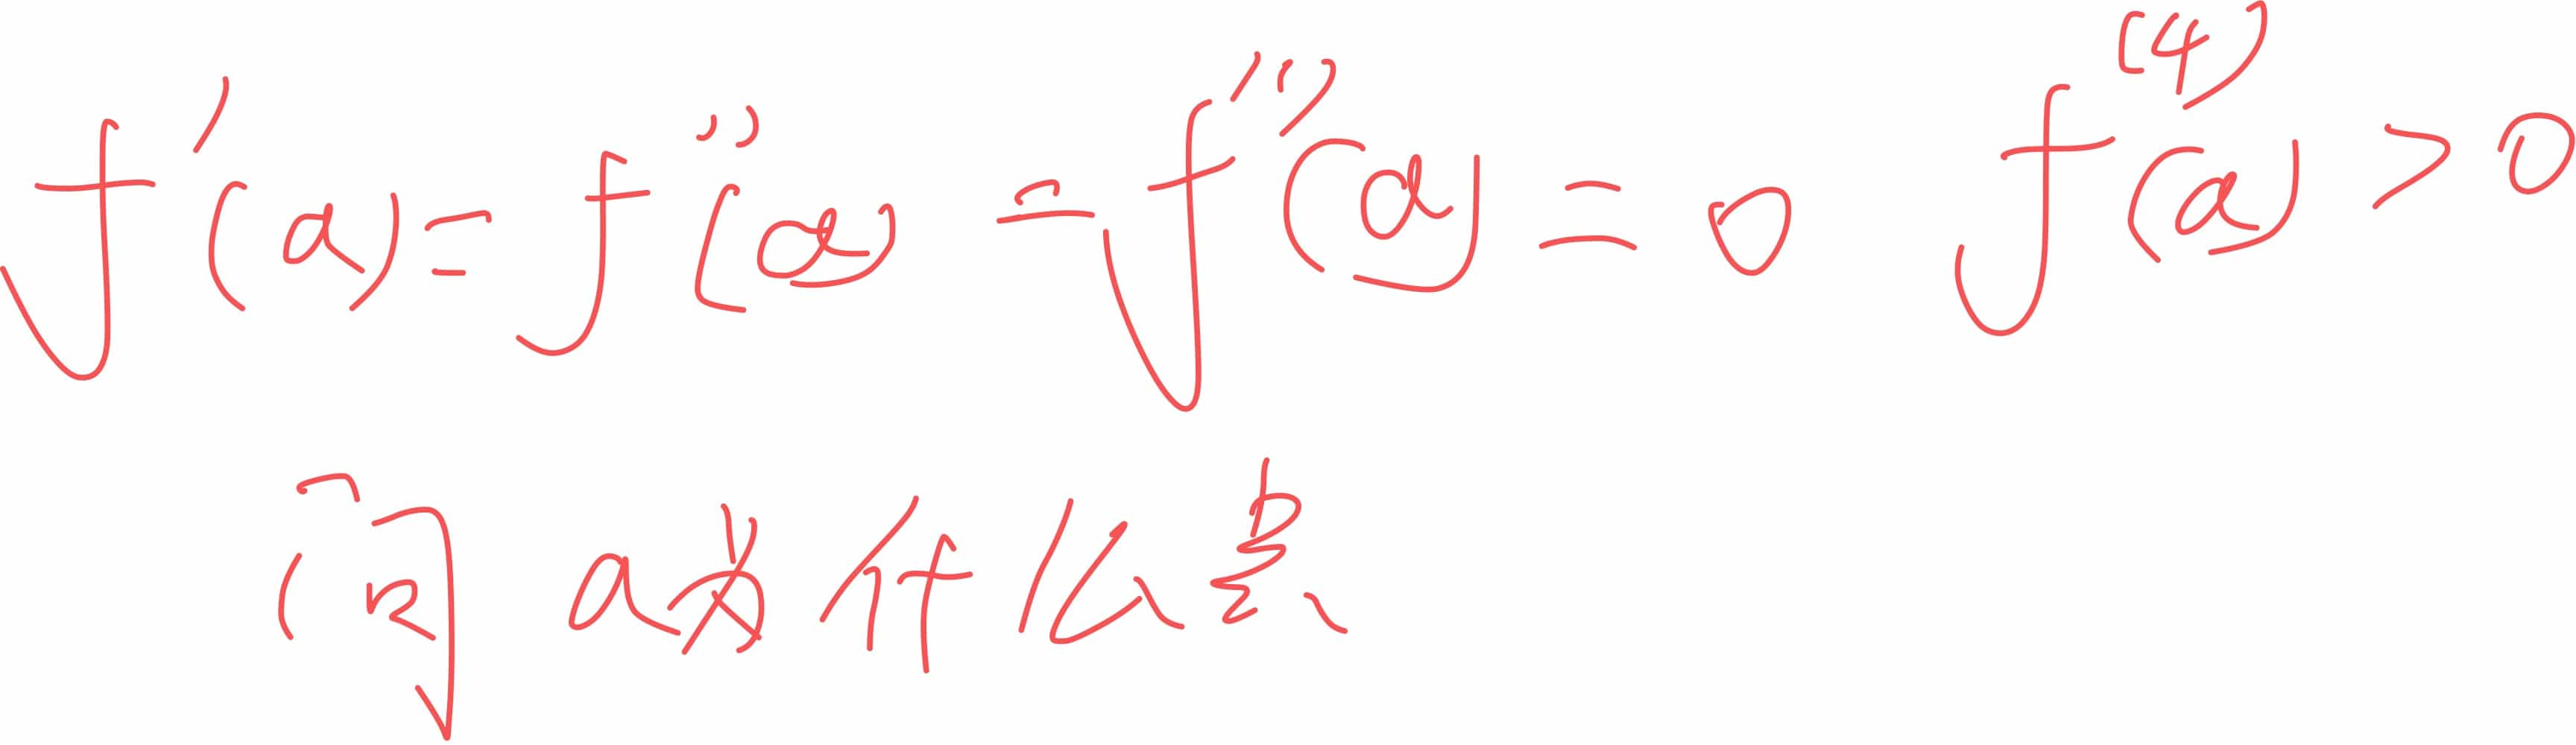 f'(a)=f''(a)=f'''(a)=0 f⁽⁴⁾(a)>0
问a为什么点